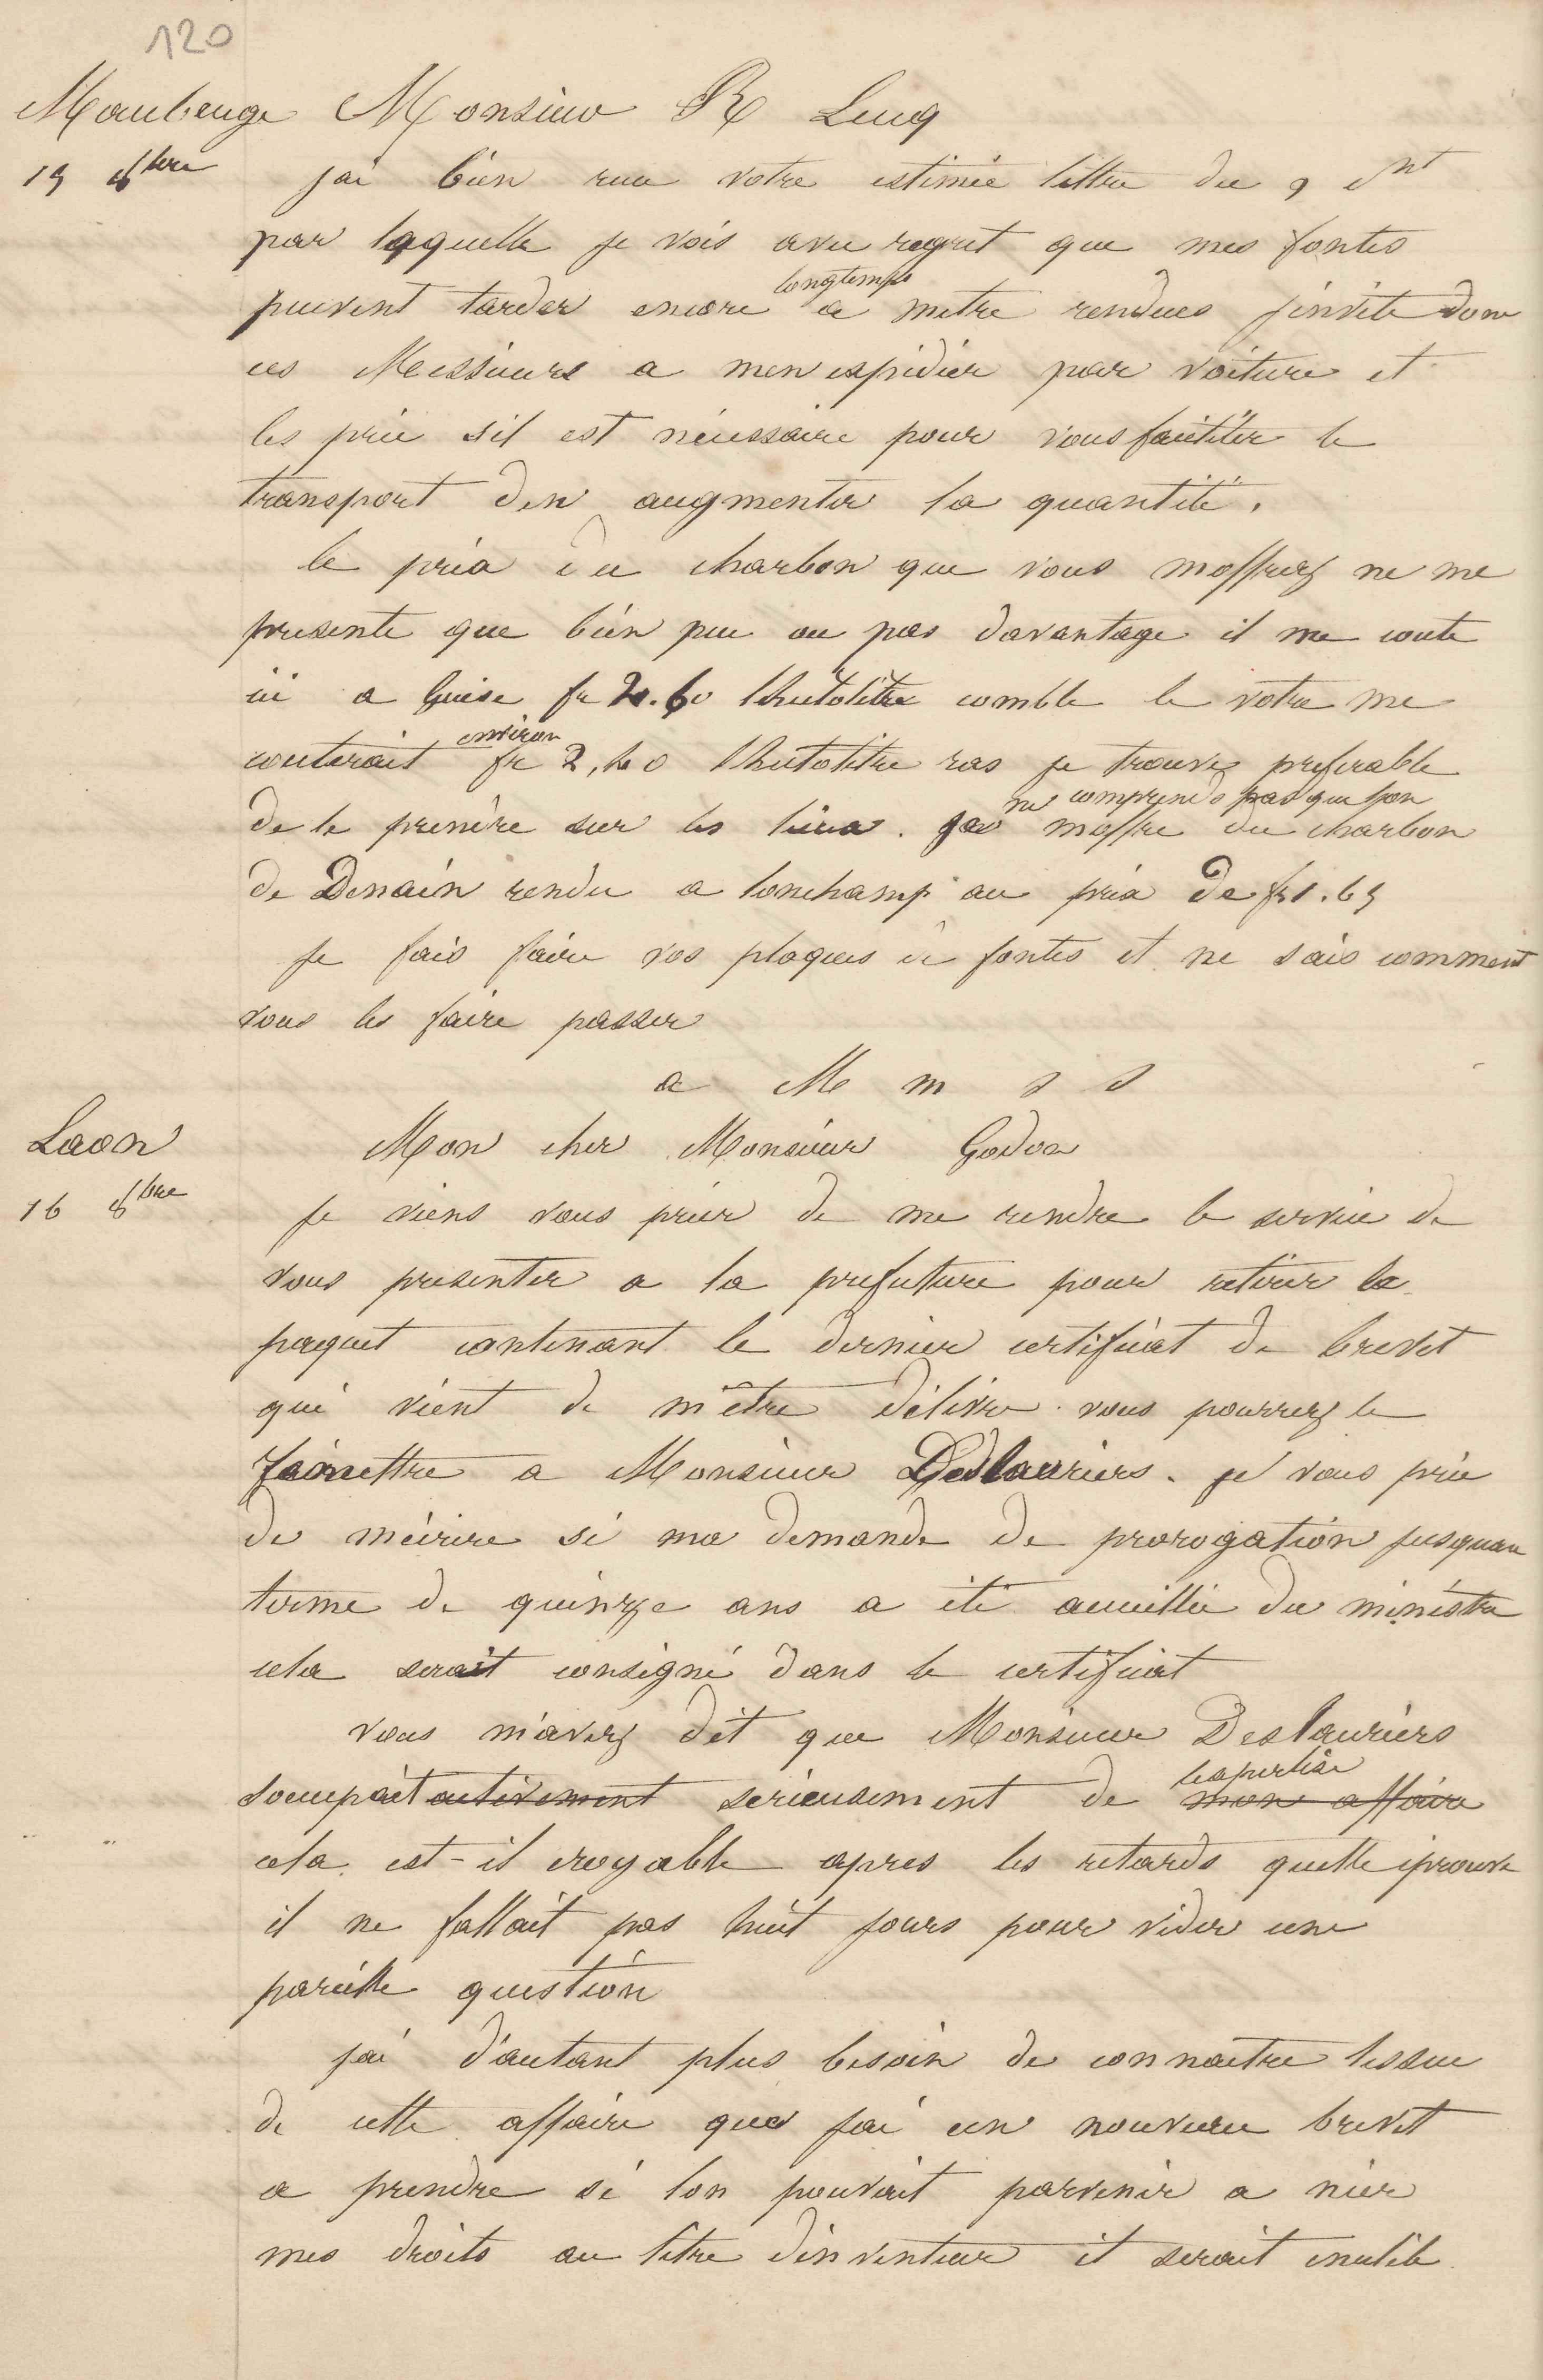 120
Maubeuge Monsieur R Lucq
15 8bre jai bien recu votre estimée lettre du 9 ct
par laquelle je vois avec regret que mes fontes
peuvent tarder encore longtemps a metre rendues jinvite donc
ces Messieurs a men expédier par voiture et
les prie sil est nécessaire pour vous faciliter le
transport den augmenter la quantité.
le prix du charbon que vous moffrez ne me
presente que bien peu ou pas davantage il me coute
ici a Guise fr 2.60 lhectolitre comble le votre me
couterait environ fr 2,40 lhectolitre ras je trouve preferable
de le prendre sur les lieux. je ne comprends pas que lon moffre du charbon
de Denain rendu a lonchamp au prix de fr 1.65
je fais faire vos plaques de fontes et ne sais comment
vous les faire passer
a M m s s
Laon Mon cher Monsieur Godon
16 8bre je viens vous prier de me rendre le service de
vous presenter a la prefecture pour retirer le
paquet contenant le dernier certificat de brevet
qui vient de m'être délivré. vous pourrez le
remettre a Monsieur Deslauriers. je vous prie
de mécrire si ma demande de prorogation jusquau
terme de quinze ans a été accueillie du ministre
cela serait consigné dans le certificat
vous m'avez dit que Monsieur Deslauriers
soccupait activement serieusement de lexpertise mon affaire
cela est-il croyable apres les retards quelle éprouve
il ne fallait pas huit jours pour vider une
pareille question
jai d'autant plus besoin de connaitre lissue
de cette affaire que jai un nouveau brevet
a prendre si lon pouvait parvenir a nier
mes droits au titre dinventeur il serait inutile